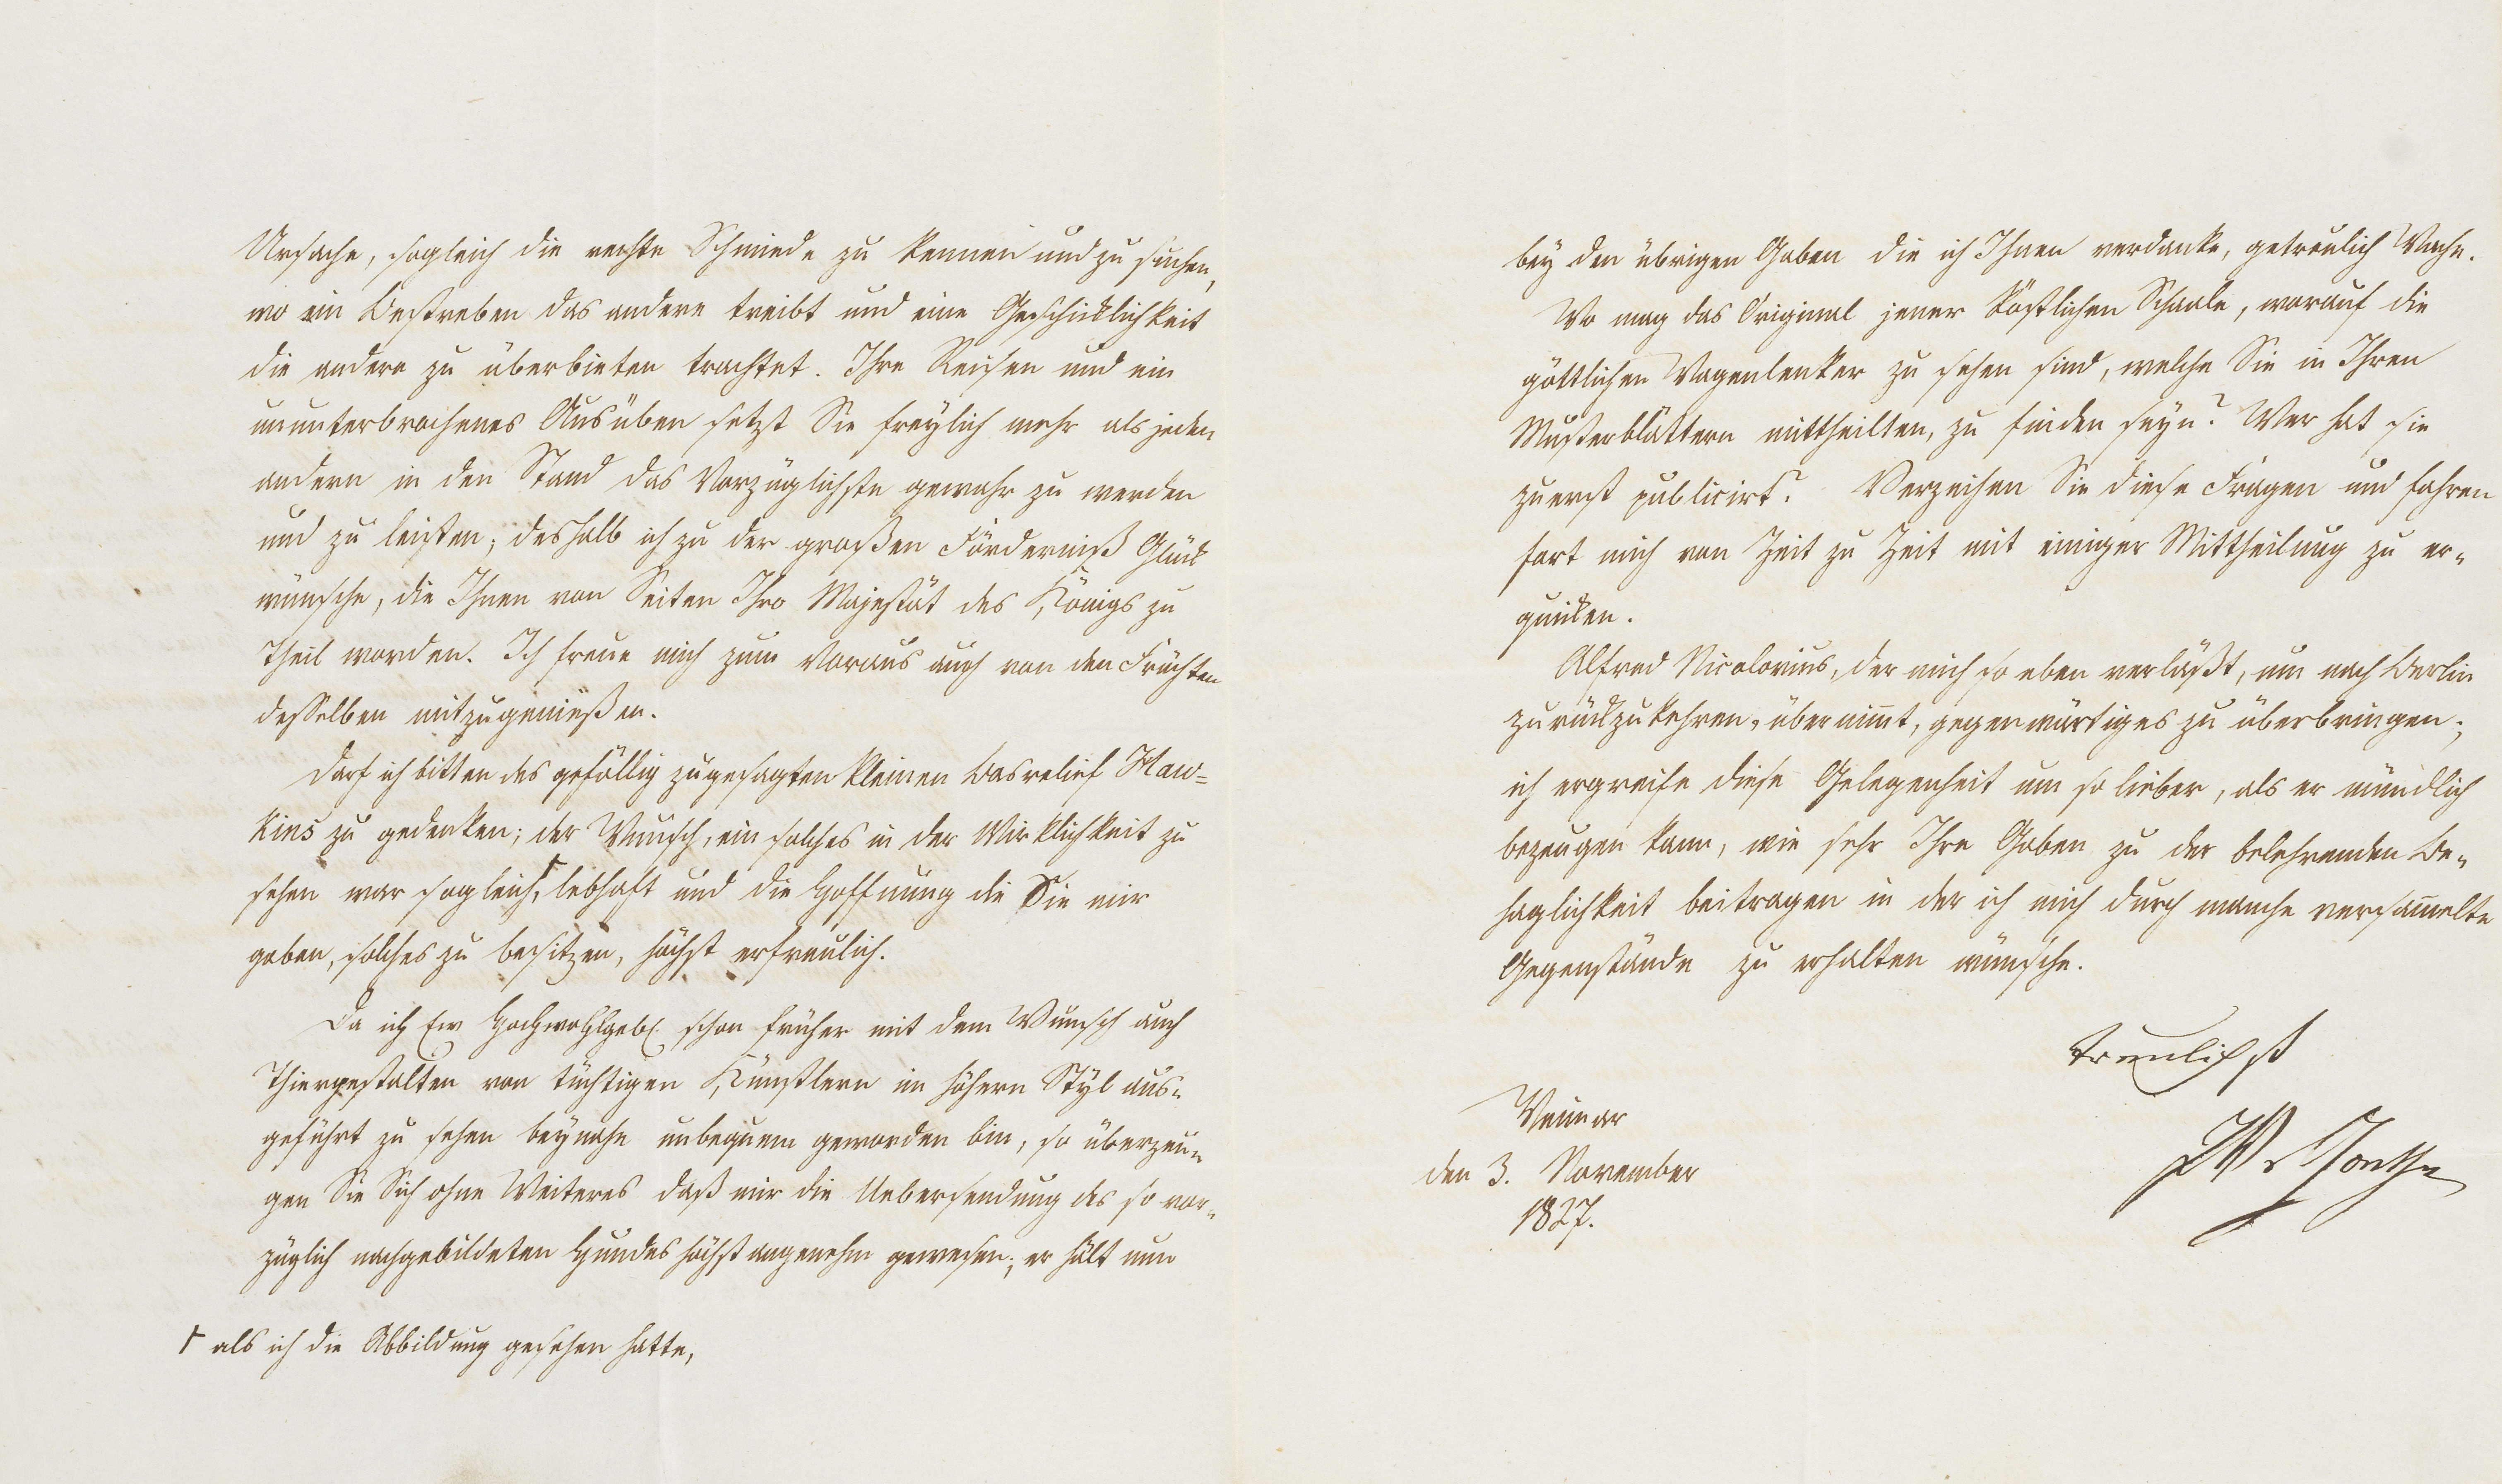 Ursache, sogleich die rechte Schmiede zu kennen und zu suchen,
wo ein Bestreben das andere treibt und eine Geschicklichkeit
die andere zu überbieten trachtet. Ihre Reisen und ein
ununterbrochenes Ausüben setzt Sie freylich mehr als jeden
andern in den Stand das Vorzüglichste gewahr zu werden
und zu leisten; deshalb ich zu der großen Förderniß Glück
wünsche, die Ihnen von Seiten Ihro Majestät des Königs zu
Theil worden. Ich freue mich zum Voraus auch von den Früchten
desselben mitzugenießen.
Darf ich bitten des gefällig zugesagten kleinen Basrelief Haw=
kins zu gedenken; der Wunsch, ein solches in der Wirklichkeit zu
sehen war sogleich,⌈ lebhaft und die Hoffnung die Sie mir
gaben, solches zu besitzen, höchst erfreulich.
Da ich Ew Hochwohlgeb. schon früher mit dem Wunsch auch
Thiergestalten von tüchtigen Künstlern im höhern Styl aus=
geführt zu sehen beynahe unbequem geworden bin, so überzeu=
gen Sie Sich ohne Weiteres daß mir die Uebersendung des so vor=
züglich nachgebildeten Hundes höchst angenehm gewesen; er hält nun
⌈ als ich die Abbildung gesehen hatte,
bey den übrigen Gaben die ich Ihnen verdanke, getreulich Wache.
Wo mag das Original jener köstlichen Schaale, worauf die
göttlichen Wagenlenker zu sehen sind, welche Sie in Ihren
Musterblättern mittheilten, zu finden seyn? Wer hat sie
zuerst publicirt? Verzeihen Sie diese Fragen und fahren
fort mich von Zeit zu Zeit mit einiger Mittheilung zu er=
quicken.
Alfred Nicolovius, der mich so eben verläßt, um nach Berlin
zurückzukehren, übernim̅t, gegenwärtiges zu überbringen;
ich ergreife diese Gelegenheit um so lieber, als er mündlich
bezeugen kann, wie sehr Ihre Gaben zu der belehrenden Be=
haglichkeit beitragen in der ich mich durch manche versam̅elte
Gegenstände zu erhalten wünsche.
treulichst
Weimar
den 3. November
1827.
JWvGoethe